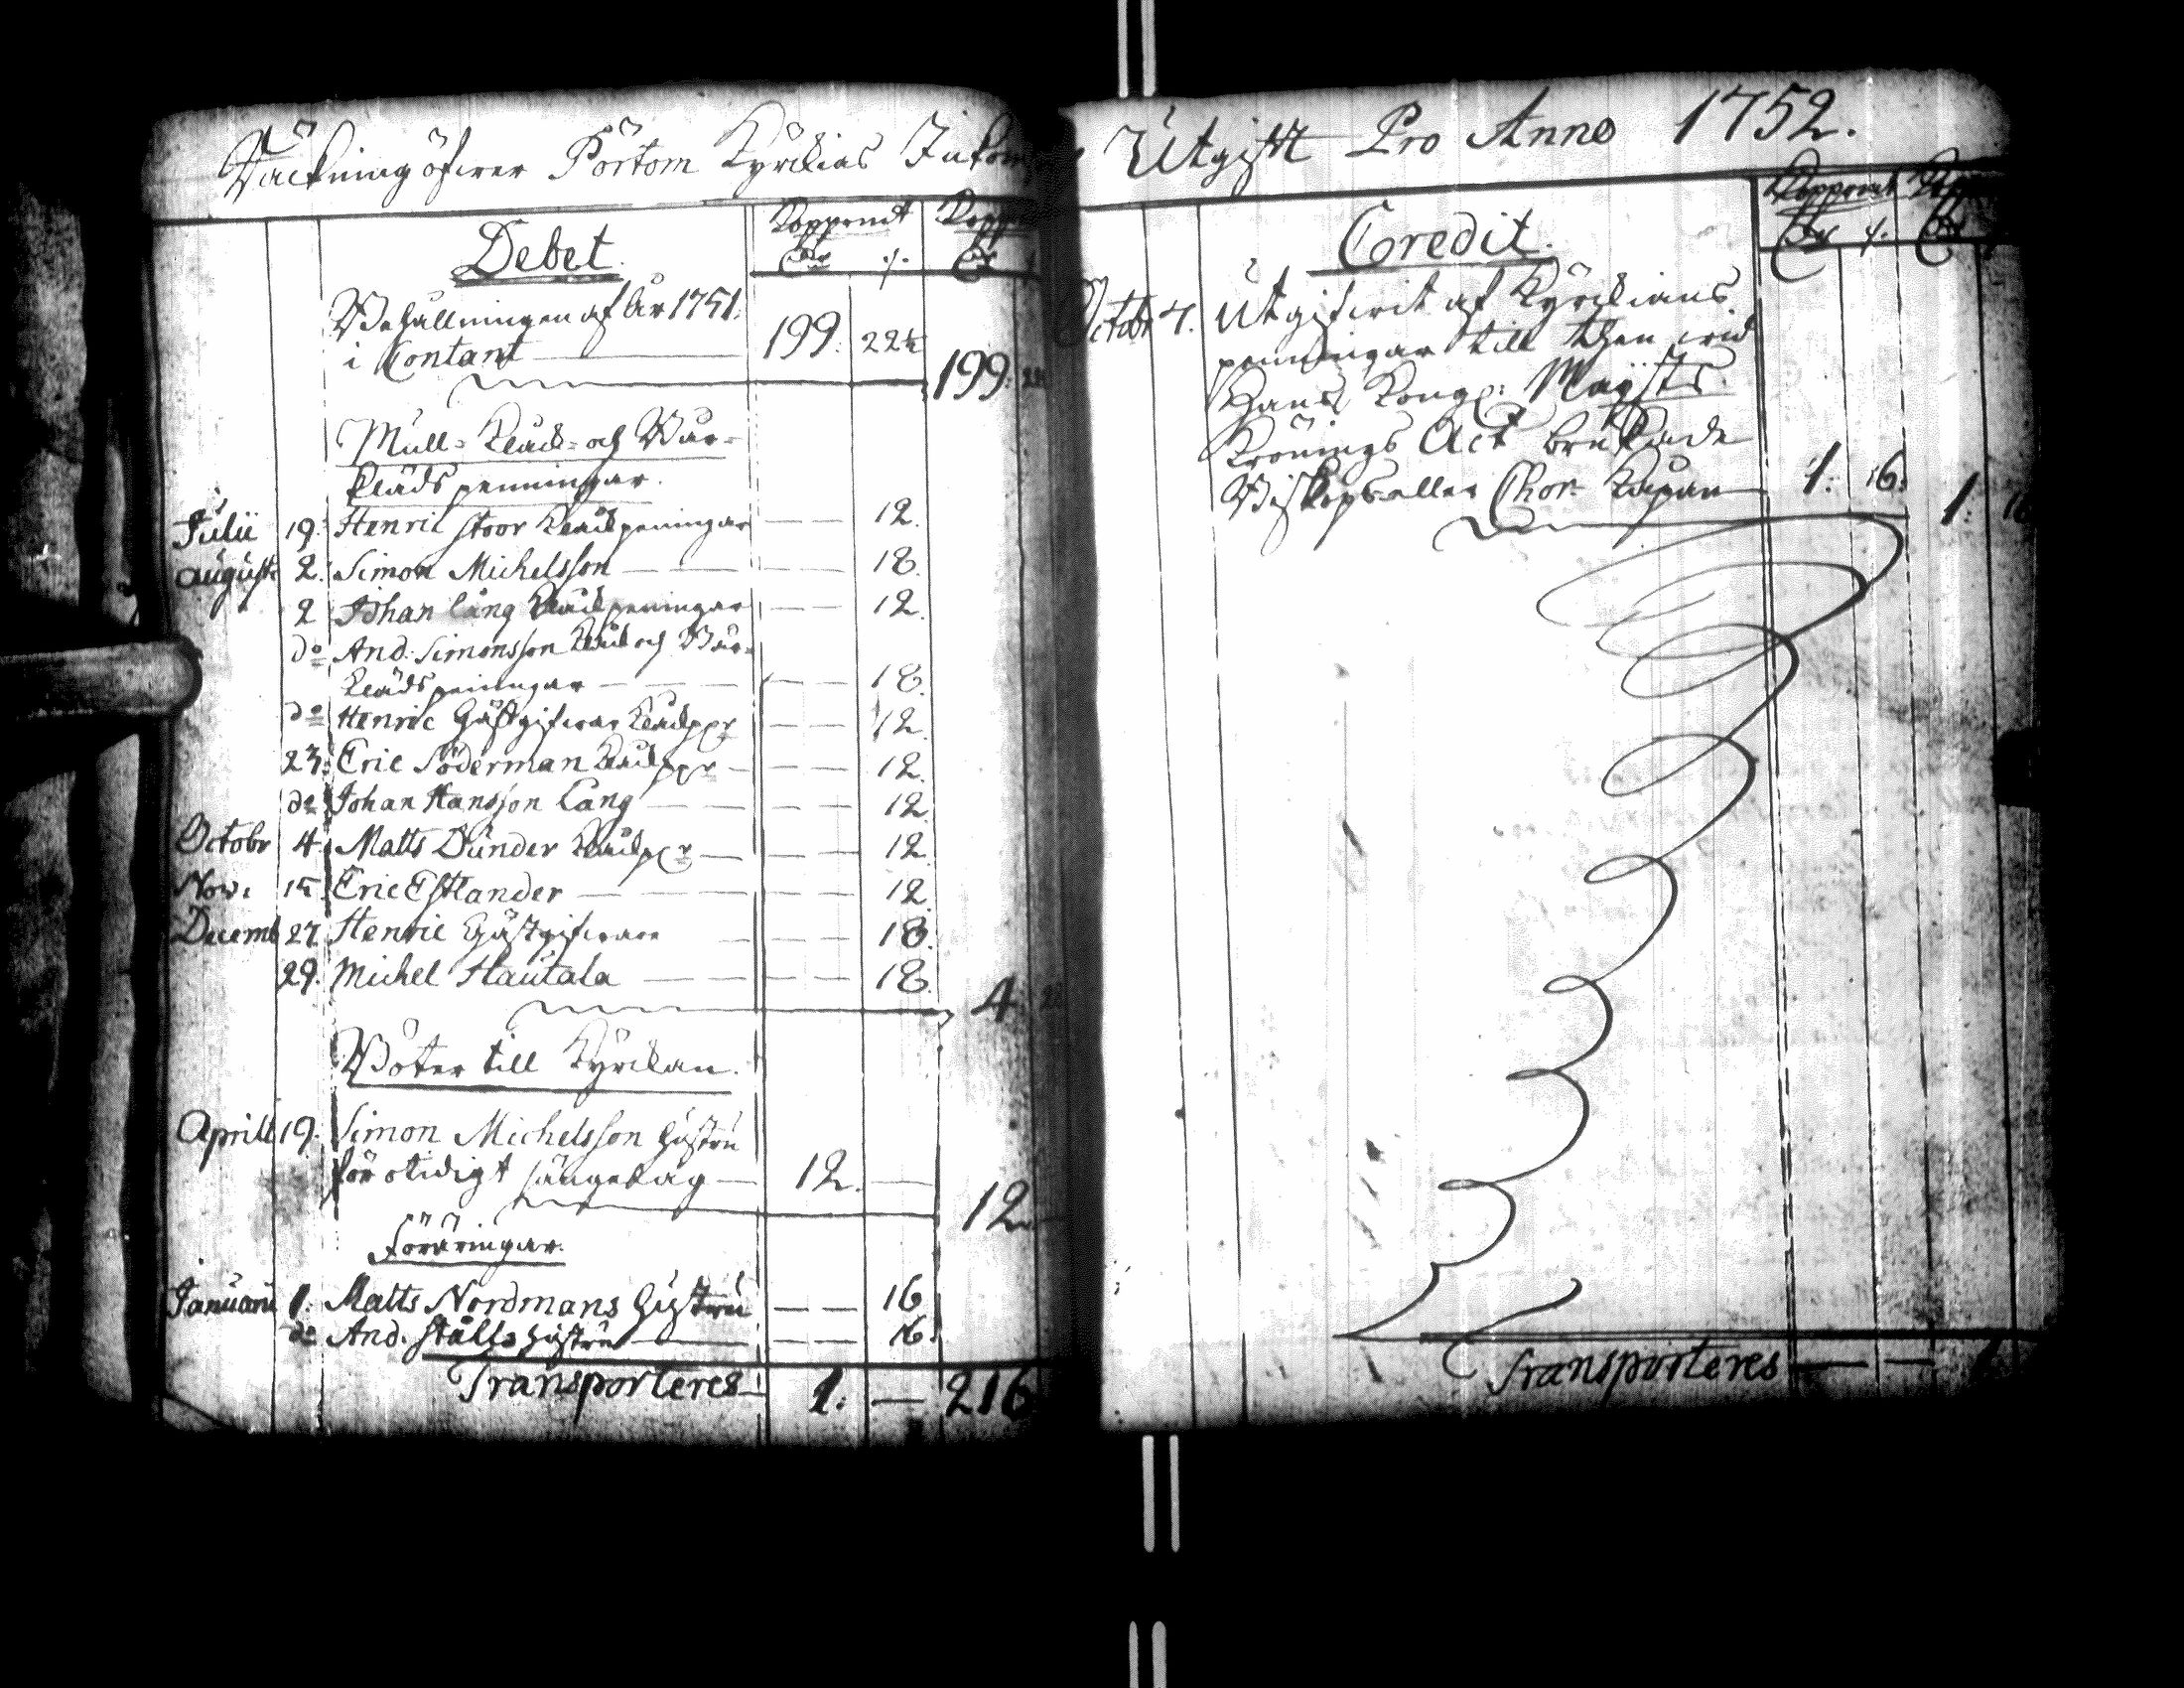 Räkning öfwer Pörtom Kyrckias Inkom
Utgifft Pro Anno 1752.
Debet.
Kopparmt
Dlr
Behållningen af År 1751.
i Contant 199: 22½
199:
Mull- Klock- och Bår-
kläds penningar.
Julii 19. Henric Stoor Klockpeningar — — 12.
August 2. Simon Michelsson — — 18.
2 Johan Lång Klockpeningar — — 12.
do And: Simonsson Klock och Bår-
klädspenningar — — 18.
do Henric Gästgifware Klockpgr — — 12.
23. Eric Söderman Klockpgr — — 12.
do Johan Hansson Lång — — 12.
Octobr 4. Matts Dunder Klockpgr — — 12.
Nov. 15 Eric Estlander — — 12.
Decemb 27 Henric Gästgifware — — 18.
29. Michel Hautala — — 18.
4
Böter till Kyrckan.
Aprill 19. Simon Michelsson hustru
för otidigt sängelag — 12. —
12 —
Föräringar.
Januarii 1. Matts Nordmans hustru — — 16
do And. Ståhls hustru — — 16.
Transporteres 1: — 216
Credit.
Kopparmt
Dlr
Octobr 4. Utgifwit af Kyrckians
penningar till then wid
Hans Kongl: Maÿsts
Krönings Act brukade
Biskops eller Chor- Kåpan 1: 16.
1:
Transporteres — —